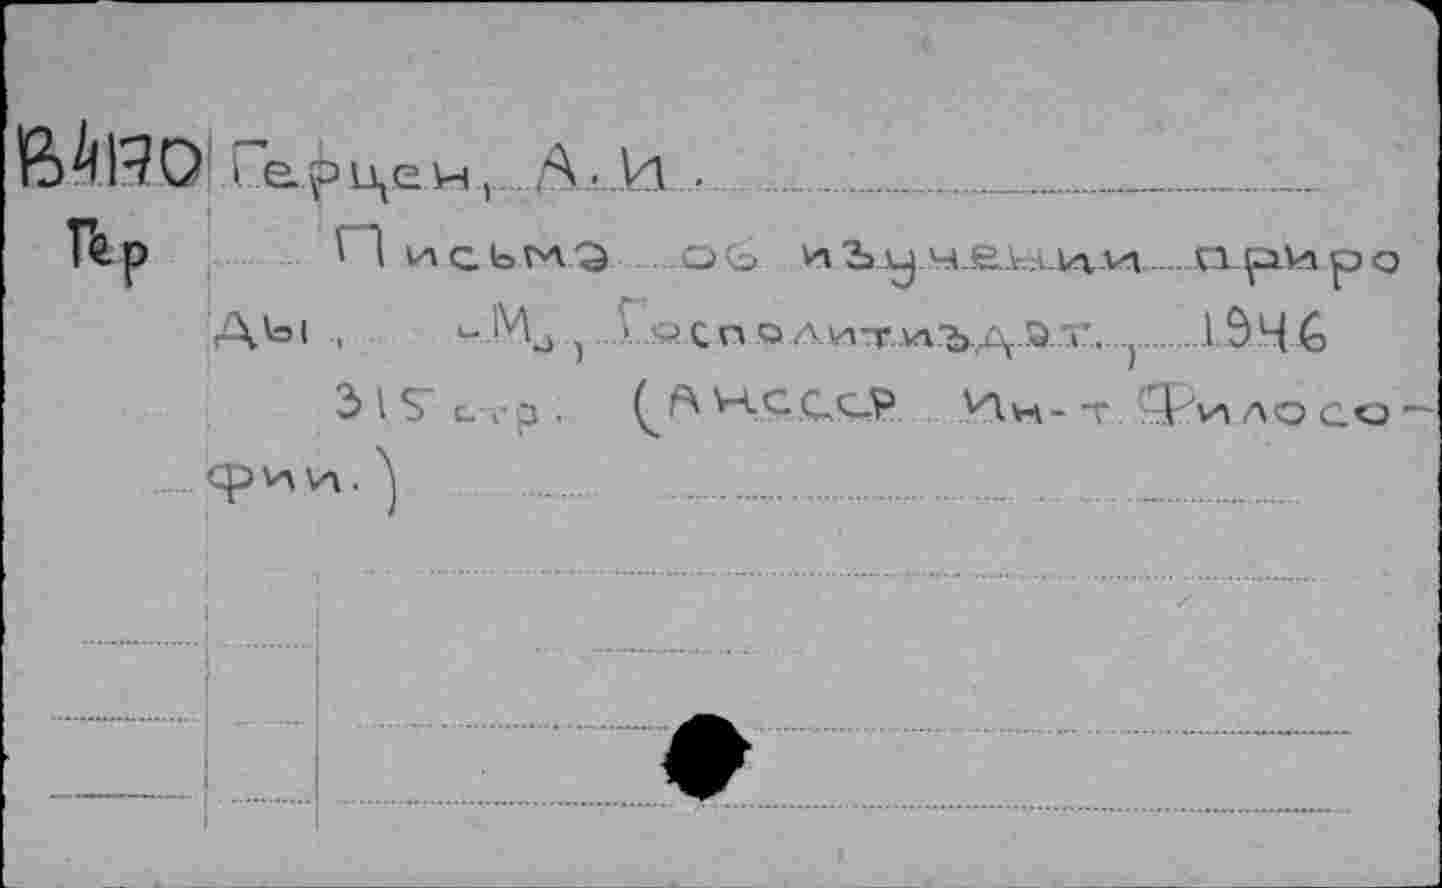 В4170 Герцен, А. И.
Гер Письма об изучении приро
ды, М., Госполитиздат., 1946
315 стр. (АНСССР Ин-т Филосо-
фии.)